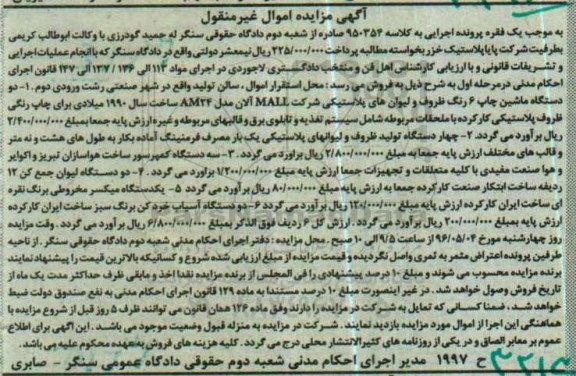 آگهی مزایده اموال غیرمنقول
به موجب یک فقره پرونده اجرایی به کلاسه ۹۵۰۳۵۴ صادره از شعبه دوم دادگاه حقوقی سنگر له حمید گودرزی با وکالت ابوطالب کریمی
بطرفیت شرکت پایا پلاستیک خزر بخواسته مطالبه پرداخت ۲۲۵/۰۰۰/۰۰۰ ریال نیمعشر دولتی واقع در دادگاه سنگر که با انجام عملیات اجرایی
و تشریفات قانونی و با ارزیابی کارشناس اهل فن و منتخب دادگستری لاجوردی در اجرای مواد ۱۱۳ الی ۱۳۶ / ۱۳۷ الی ۱۴۷ قانون اجرای
احکام مدنی در مرحله اول به شرح ذیل به فروش می رسد: محل استقرار اموال، سالن تولید واقع در شهر صنعتی رشت ورودی دوم ۱۰- دو
دستگاه ماشین چاپ ۶ رنگ ظروف و لیوان های پلاستیکی شرکت MALL آلان مدل AM24 ساخت سال ۱۹۹۰ میلادی برای چاپ رنگی
ظروف پلاستیکی کارکرده با ملحقات مربوطه شامل سیستم تغذیه و تابلوی برق و قالبهای مربوطه و غیره ارزش پایه جمعا بمبلغ ۲/۴۰۰/۰۰۰/۰۰۰
ریال برآورد می گردد. ۲- چهار دستگاه تولید ظروف و لیوانهای پلاستیکی یک بار مصرف فرمنینگ آماده بکار به طول های هشت و نه متر
و قالب های مختلف ارزش پایه جمعا به مبلغ ۲/۸۰۰/۰۰۰/۰۰۰ ریال براورد می گردد. ۳- سه دستگاه کمپرسور ساخت هواسازان تبریز و اکوایر
و هوا صنعت مفیدی با کلیه متعلقات و تجهیزات جمعا ارزش پایه بمبلغ ۱/۲۰۰/۰۰۰/۰۰۰ براورد می گردد. ۴- دو دستگاه لیوان جمع کن ۱۲
ردیفه ساخت ابتکار صنعت کارکرده جمعا به ارزش پایه بمبلغ ۸۰/۰۰۰/۰۰۰ ریال برآورد می گردد ۵- یکدستگاه میکسر مخروطی برنگ نقره
ای ساخت ایران کارکرده ارزش پایه بمبلغ ۱۲۰/۰۰۰/۰۰۰ ریال برآورد می گردد ۶- دو دستگاه آسیاب خرد کن برنگ سبز ساخت ایران کارکرده
ارزش پایه بمبلغ ۲۰۰/۰۰۰/۰۰۰ ریال برآورد می گردد . ارزش کل ۶ ردیف فوق الذکر بمبلغ ۶/۸۰۰/۰۰۰/۰۰۰ ریال برآورد می گردد. وقت مزایده
روز چهارشنبه مورخ ۹۶/۰۵/۰۴ از ساعت ۹/۵ الی ۱۰ صبح. محل مزایده: دفتر اجرای احکام مدنی شعبه دوم دادگاه حقوقی سنگر. از ناحیه
طرفین پرونده اعتراض مثمر به ثمری واصل نگردیده و قیمت مزایده از مبلغ ارزیابی شده شروع و کسانیکه بالاترین قیمت را پیشنهاد نمایند
برنده مزایده محسوب می شوند و مبلغ ۱۰ درصد پیشنهادی را فی المجلس از برنده مزایده نقدا اخذ و مابقی ظرف حداکثر مدت یک ماه از
تاریخ فروش وصول خواهد شد. در غیر اینصورت مبلغ ۱۰ درصد مستندا به ماده ۱۲۹ قانون اجرای احکام مدنی به نفع صندوق دولت ضبط
خواهد شد، ضمنا کسانی که تمایل به شرکت در مزایده را دارند وفق ماده ۱۲۶ همان قانون می توانند ظرف ۵ روز قبل از شروع مزایده با
هماهنگی این اجرا از اموال مورد مزایده بازدید نمایند . شرکت در مزایده به منزله قبول وضعیت موجود می باشد. این آگهی برای اطلاع
عموم بر معابر الصاق و در یکی از روزنامه های کثیرالانتشار محلی درج می گردد. کلیه هزینه های فروش به عهده محکوم علیه می باشد.
ح ۱۹۹۷ مدیر اجرای احکام مدنی شعبه دوم حقوقی دادگاه عمومی سنگر - صابری